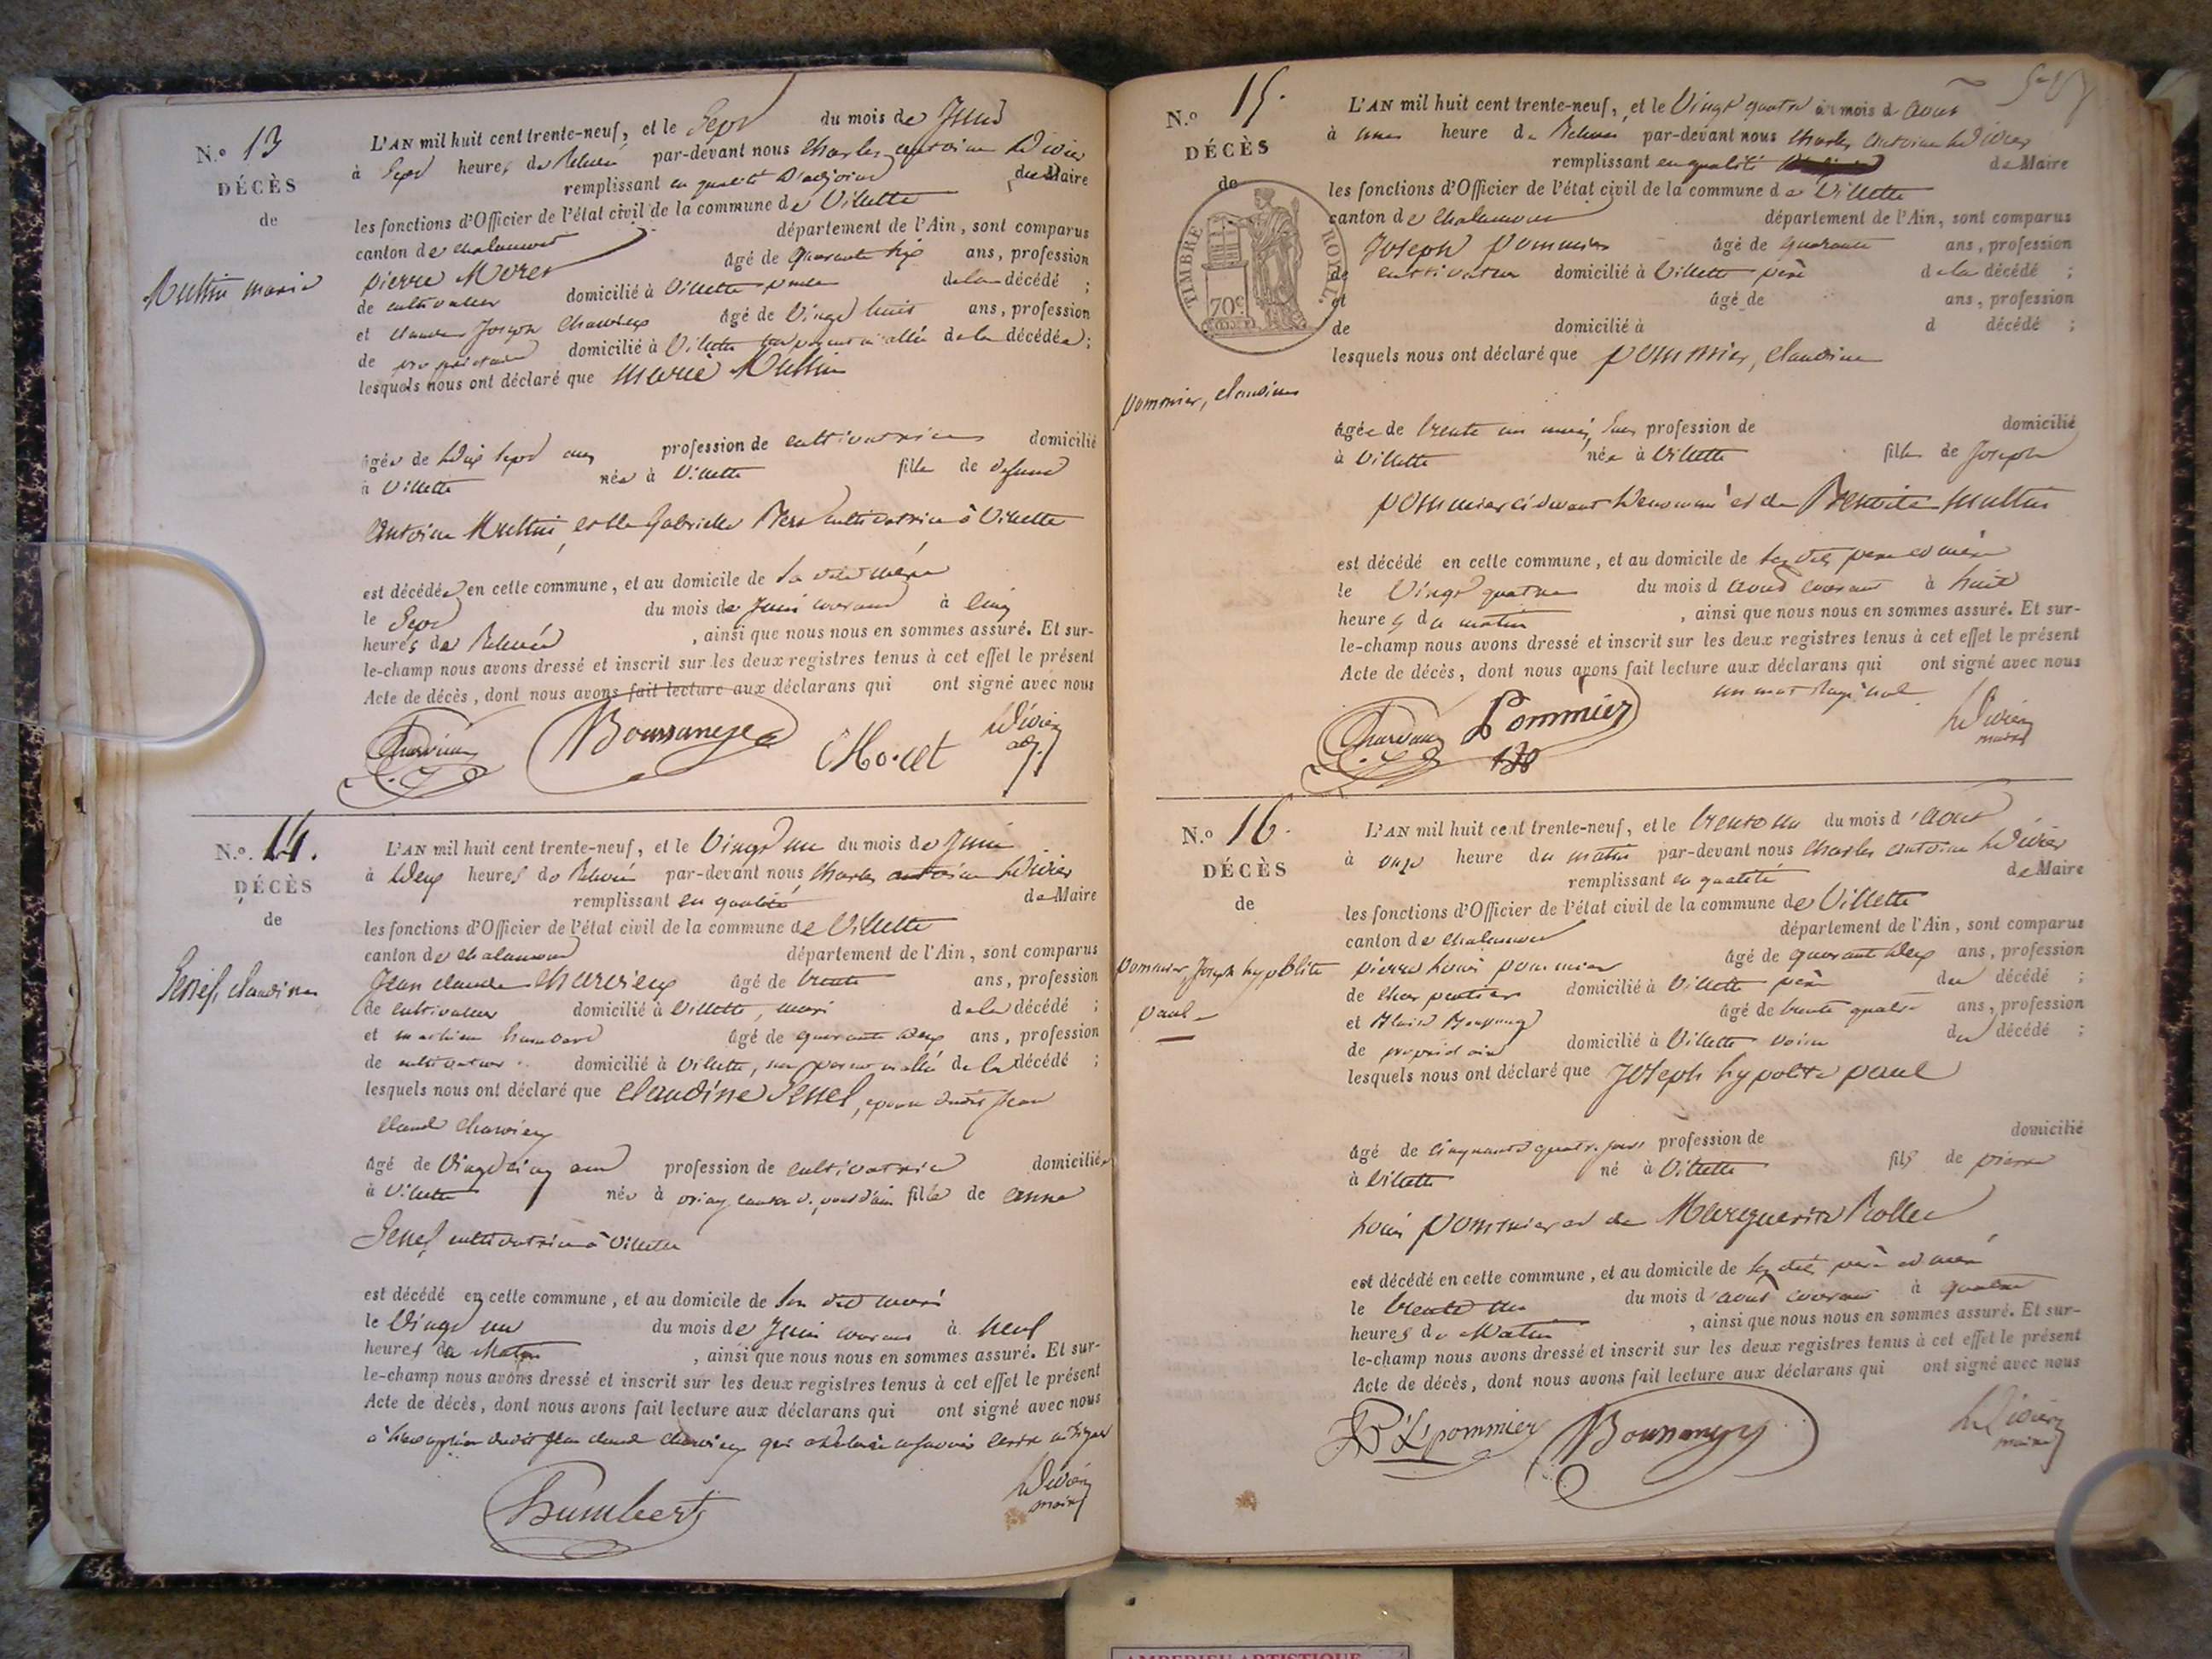 N.o 13
DÉCÈS
de
Muttin marie
L'AN mil huit cent trente-neuf, et le Sept du mois de Juin
à Sept heures de Relevée par-devant nous Charles antoine Divier
remplissant en qualité d'adjoint du Maire
les fonctions d'Officier de l'état civil de la commune de Villette
canton de chalamont département de l'Ain, sont comparus
pierre Moret âgé de quarante six ans, profession
de cultivateur domicilié à Villette de la décédé ;
et claude Joseph Charvieux âgé de Vingt huit ans, profession
de propriétaire domicilié à Villette de la décédée ;
lesquels nous ont déclaré que Marie Muttin
âgée de Dix Sept ans profession de cultivatrice domicilié
à Villette née à Villette fille de defunt
Antoine Muttin, et de Gabrielle cultivatrice à Villette
est décédée en cette commune, et au domicile de Sa dite mère
le Sept du mois de Juin courant à Cinq
heures de Relevée , ainsi que nous nous en sommes assuré. Et sur-
le-champ nous avons dressé et inscrit sur les deux registres tenus à cet effet le présent
Acte de décès, dont nous avons fait lecture aux déclarans qui ont signé avec nous
Boussange Moret Divier
adj.
N.o 14.
DÉCÈS
de
Senel, claudine
L'AN mil huit cent trente-neuf, et le Vingt un du mois de Juin
à Deux heures de Relevée par-devant nous Charles antoine Divier
remplissant en qualité de Maire
les fonctions d'Officier de l'état civil de la commune de Villette
canton de chalamont département de l'Ain, sont comparus
Jean claude Charvieux âgé de trente ans, profession
de cultivateur domicilié à Villette, mari de la décédé ;
et mathieu humbert âgé de quarante deux ans, profession
de cultivateur domicilié à Villette, de la décédé ;
lesquels nous ont déclaré que Claudine Senel, epouse dudit Jean
Claude Charvieux
âgé de Vingt cinq ans profession de cultivatrice domiciliée
à Villette née à fille de anne
Senel cultivatrice à Villette
est décédé en cette commune, et au domicile de Son dit mari
le Vingt un du mois de Juin courant à neuf
heures du Matin , ainsi que nous nous en sommes assuré. Et sur-
le-champ nous avons dressé et inscrit sur les deux registres tenus à cet effet le présent
Acte de décès, dont nous avons fait lecture aux déclarans qui ont signé avec nous
à l'exception dudit Jean claude Charvieux qui a déclaré ne savoir
Humbert Divier
maire
N.o 15.
DÉCÈS
de
TIMBRE ROYAL
70c
pommier, claudine
L'AN mil huit cent trente-neuf, et le Vingt quatre du mois d aout
à une heure de Relevée par-devant nous Charles Antoine Divier
remplissant en qualité de Maire
les fonctions d'Officier de l'état civil de la commune de Villette
canton de chalamont département de l'Ain, sont comparus
Joseph pommier âgé de quarante ans, profession
de cultivateur domicilié à Villette père de la décédé ;
et âgé de ans, profession
de domicilié à d décédé ;
lesquels nous ont déclaré que pommier, claudine
âgée de trente un mois, Sans profession de domicilié
à Villette née à Villette fille de Joseph
pommier cidevant denommé et de Benoite Muttin
est décédé en cette commune, et au domicile de Ses dits pere et mère
le Vingt quatre du mois d aout courant à huit
heures du matin , ainsi que nous nous en sommes assuré. Et sur-
le-champ nous avons dressé et inscrit sur les deux registres tenus à cet effet le présent
Acte de décès, dont nous avons fait lecture aux déclarans qui ont signé avec nous
un mot Rayé nul
Pommier Divier
maire
N.o 16.
DÉCÈS
de
pommier, Joseph hypolite
paul
L'AN mil huit cent trente-neuf, et le trente un du mois d'aout
à onze heure du matin par-devant nous Charles antoine Divier
remplissant en qualité de Maire
les fonctions d'Officier de l'état civil de la commune de Villette
canton de chalamont département de l'Ain, sont comparus
pierre louis pommier âgé de quarante deux ans, profession
de charpentier domicilié à Villette père du décédé ;
et âgé de trente quatre ans, profession
de propriétaire domicilié à Villette voisin du décédé ;
lesquels nous ont déclaré que Joseph hypolite paul
âgé de cinquante quatre jours profession de domicilié
à Villette né à Villette fils de pierre
louis pommier et de Marguerite Rollet
est décédé en cette commune, et au domicile de Ses dits père et mère
le trente un du mois d'aout courant à quatre
heures du Matin , ainsi que nous nous en sommes assuré. Et sur-
le-champ nous avons dressé et inscrit sur les deux registres tenus à cet effet le présent
Acte de décès, dont nous avons fait lecture aux déclarans qui ont signé avec nous
pommier Boussange Divier
maire
AMBERIEU ARTISTIQUE